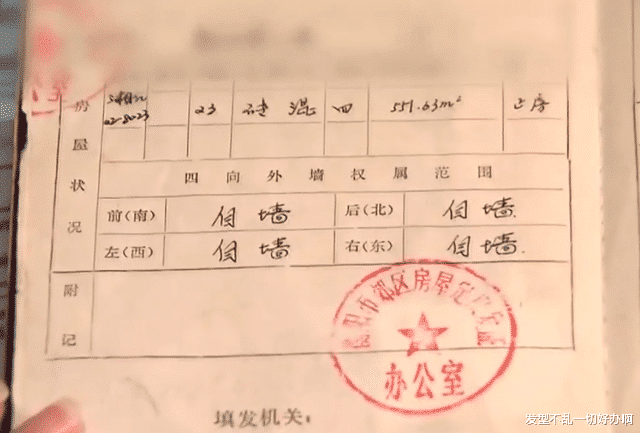 房屋状况
23 砖混 四 551.63m² 正房
四向外墙权属范围
前(南) 自墙 后(北) 自墙
左(西) 自墙 右(东) 自墙
附记
办公室
填发机关:
发型不乱一切好办啊